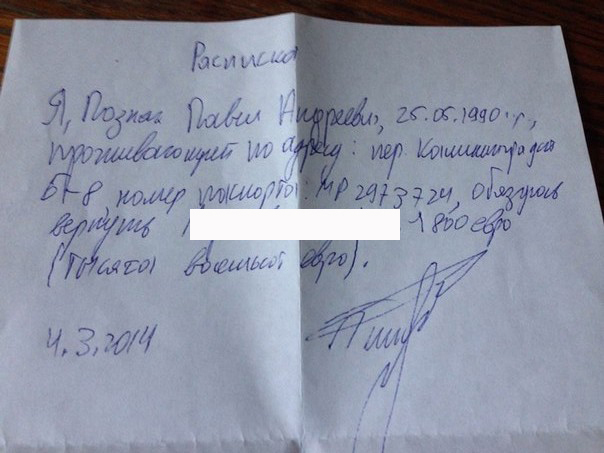 Расписка
Я, Позняк Павел Андреевич, 25.05.1990 г.,
проживающий по адресу: пер. Калининградский
5-8, номер паспорта: МР 2973724, обязуюсь
вернуть 1800 евро
(тысяча восемьсот евро).
4.3.2014